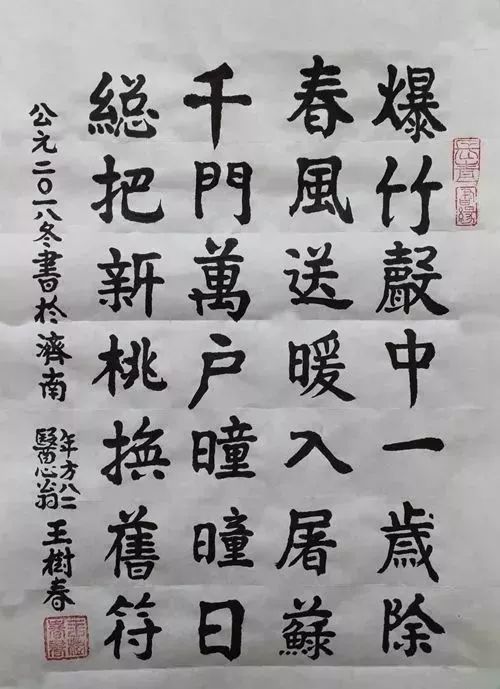 爆竹聲中一歲除
春風送暖入屠蘇
千門萬户曈曈日
總把新桃換舊符
公元二〇一八冬書於濟南
年方八二
醫心翁
王樹春